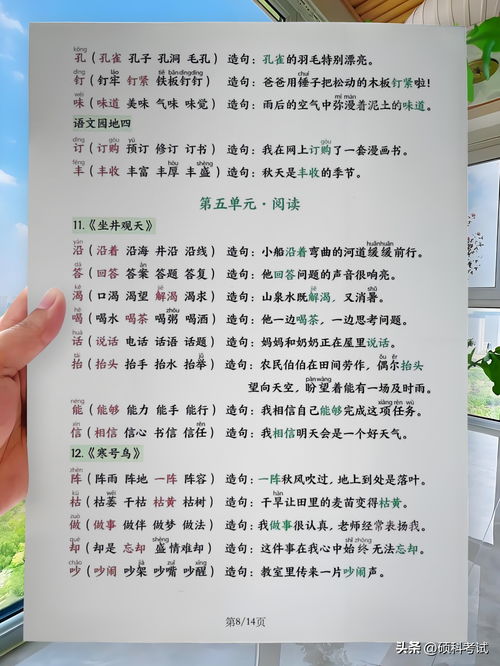 孔（孔雀 孔子 孔洞 毛孔） 造句：孔雀的羽毛特别漂亮。
钉（钉牢 钉紧 铁板钉钉） 造句：爸爸用锤子把松动的木板钉紧啦！
味（味道 美味 气味 味觉） 造句：雨后的空气中弥漫着泥土的味道。
语文园地四
订（订购 预订 修订 订书） 造句：我在网上订购了一套漫画书。
丰（丰收 丰富 丰厚 丰盛） 造句：秋天是丰收的季节。
第五单元·阅读
11.《坐井观天》
沿（沿着 沿海 井沿 沿线） 造句：小船沿着弯曲的河道缓缓前行。
答（回答 答案 答题 答复） 造句：他回答问题的声音很响亮。
渴（口渴 渴望 解渴 渴求） 造句：山泉水既解渴，又消暑。
喝（喝水 喝茶 喝粥 喝酒） 造句：他一边喝茶，一边思考问题。
话（说话 电话 话语 话题） 造句：妈妈和奶奶正在屋里说话。
抬（抬头 抬手 抬水 抬举） 造句：农民伯伯在田间劳作，偶尔抬头
望向天空，盼望着能有一场及时雨。
能（能够 能力 能手 能行） 造句：我相信自己能够完成这项任务。
信（相信 信心 书信 信任） 造句：我相信明天会是一个好天气。
12.《寒号鸟》
阵（阵雨 阵地 一阵 阵容） 造句：一阵秋风吹过，地上到处是落叶。
枯（枯萎 干枯 枯黄 枯树） 造句：干旱让田里的麦苗变得枯黄。
做（做事 做伴 做梦 做法） 造句：我做事很认真，老师经常表扬我。
却（却是 忘却 盛情难却） 造句：这件事在我心中始终无法忘却。
吵（吵闹 吵架 吵嘴 吵醒） 造句：教室里传来一片吵闹声。
第8/14页
头条 @硕科考试